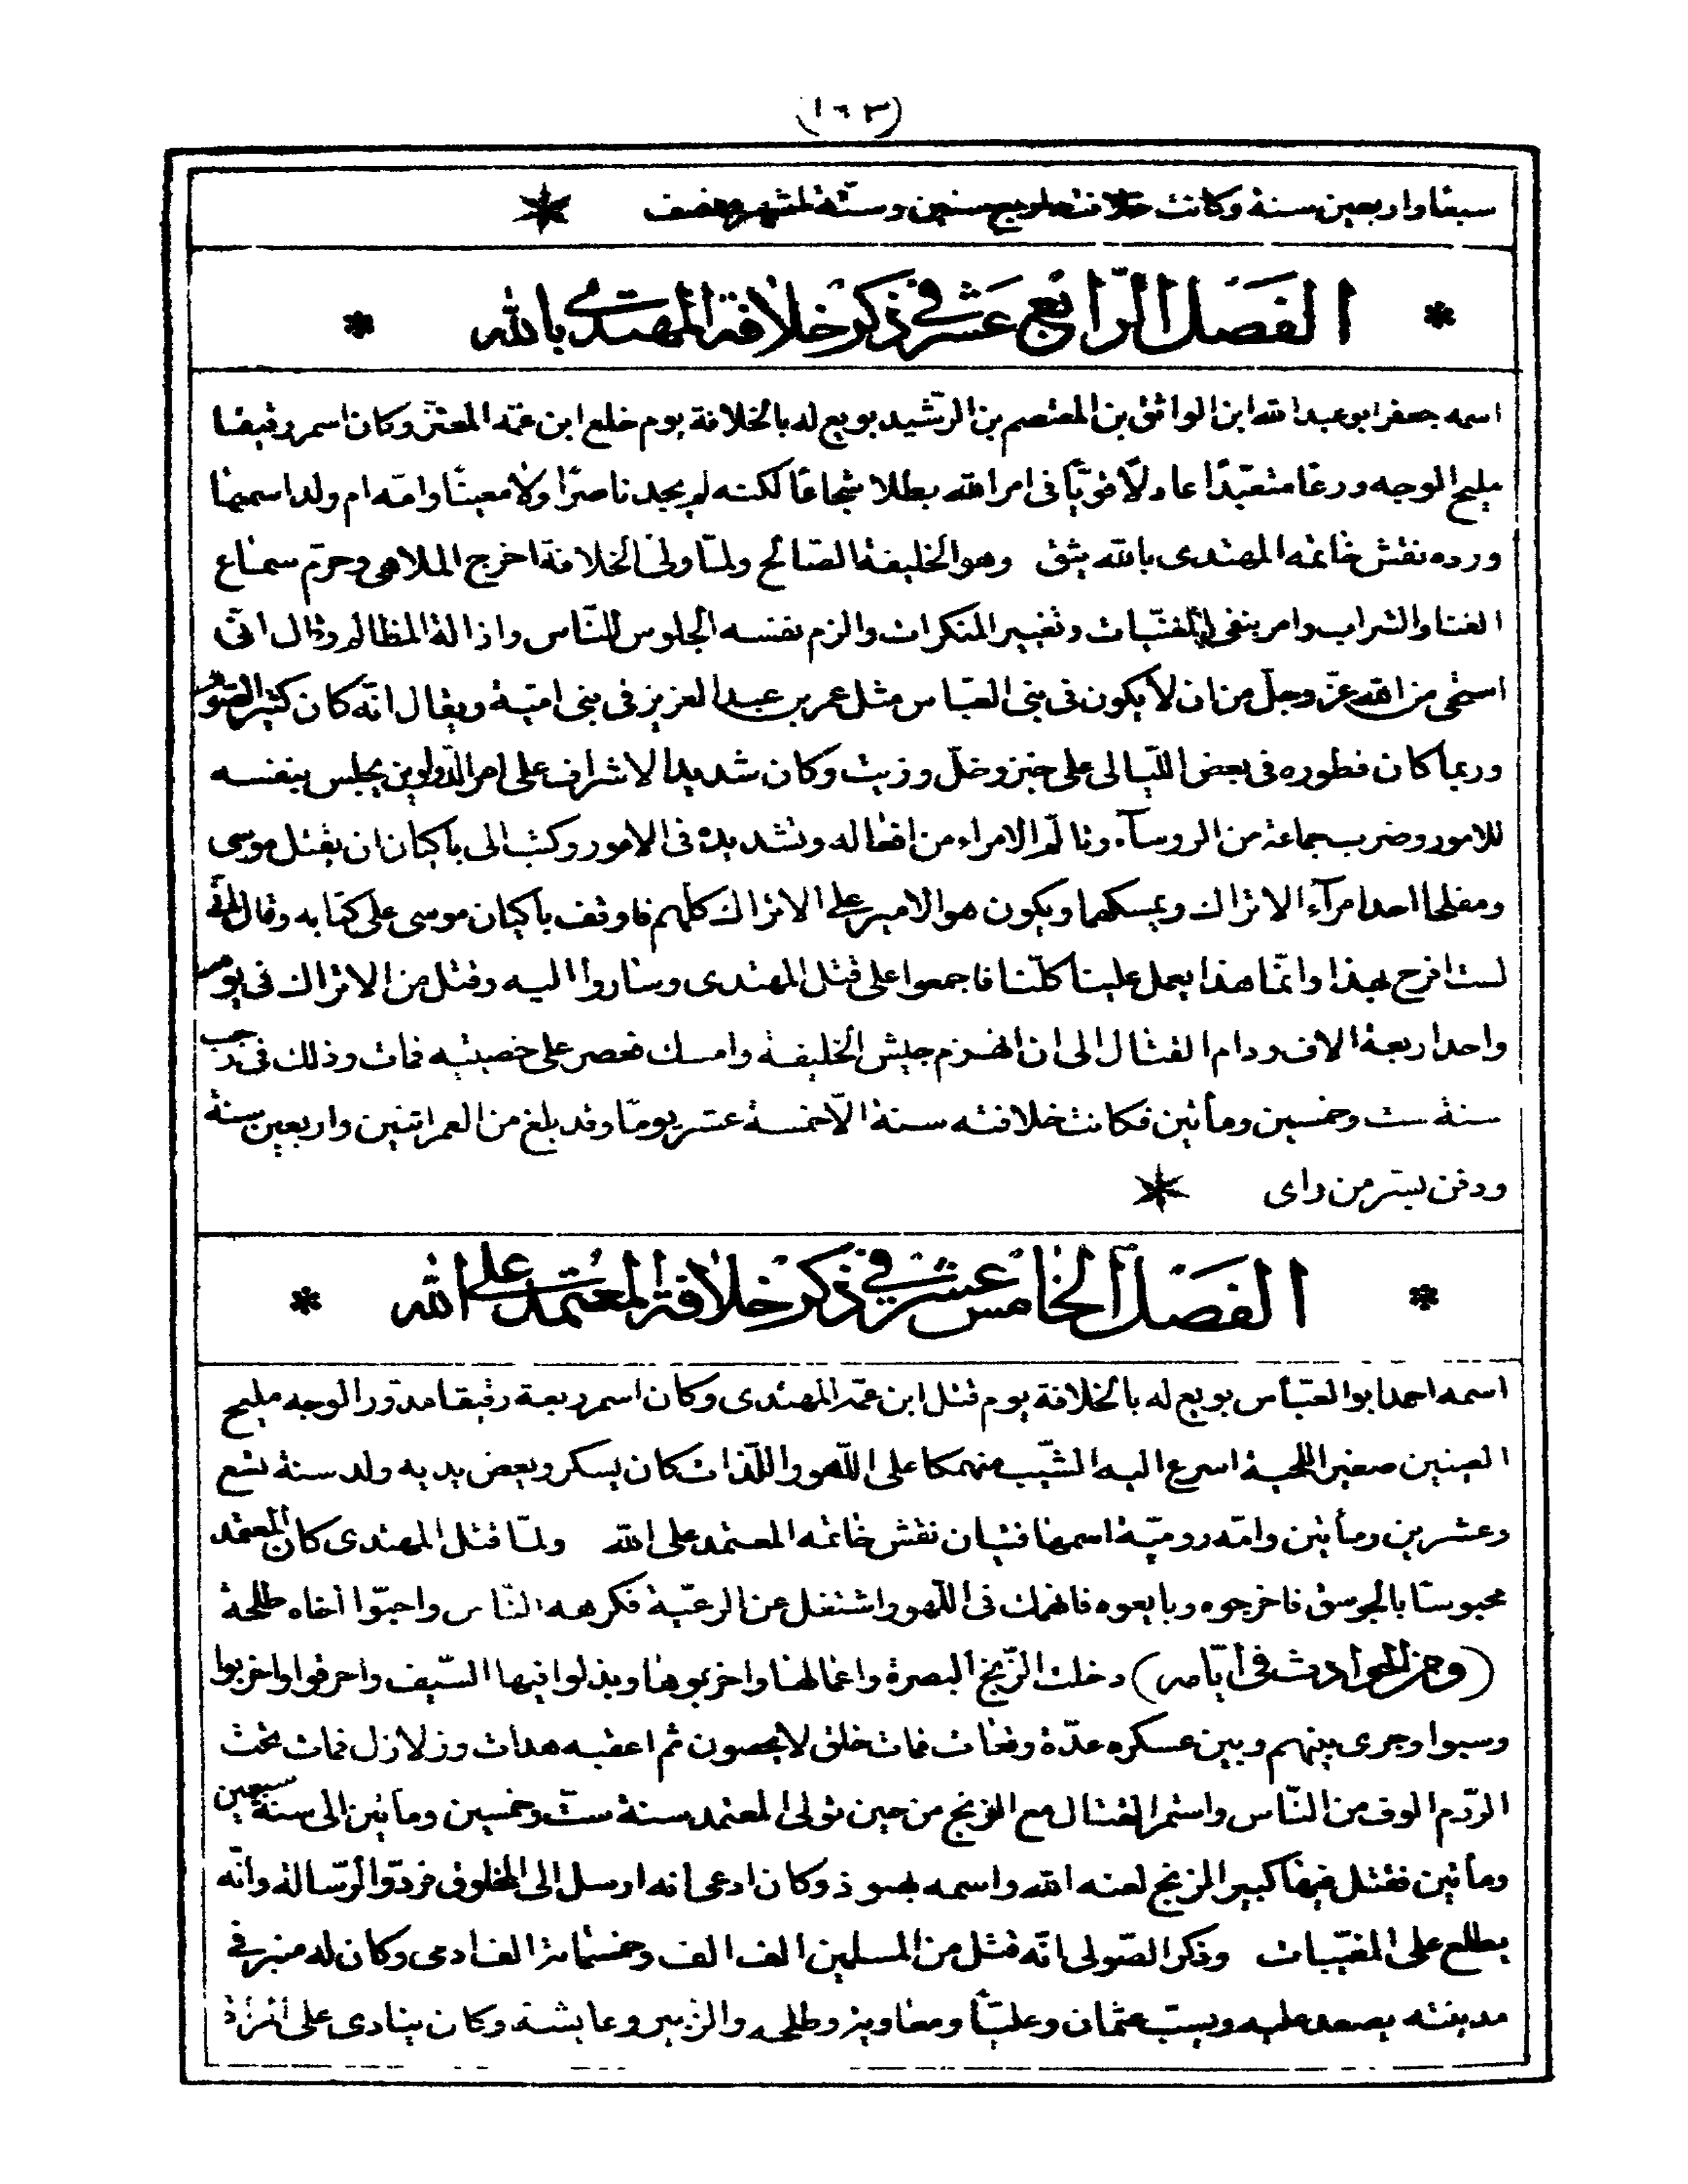 (١٦٣)
سبعًا واربعين سنة وكانت خلافته اربع سنين وستّة اشهر ونصف
* الفصل الرّابع عشر فى ذكر خلافة المهتدى بالله *
اسمه جعفر ابو عبد الله ابن الواثق بن المعتصم بن الرّشيد بويع له بالخلافة يوم خلع ابن عمّه المعتزّ وكان اسمر رقيقا
مليح الوجه ورعًا متعبّدًا عادلًا قويّا فى امر الله بطلا شجاعًا لكنه لم يجد ناصرًا ولا معينًا وامّه ام ولد اسمها
ورده نقش خاتمه المهتدى بالله يثق وهو الخليفة الصّالح ولمّا ولى الخلافة اخرج الملاهى وحرّم سماع
الغنا والشراب وامر بنفى المغنّيات وتغيير المنكرات والزم نفسه الجلوس للنّاس وازالة المظالم وقال انّى
استحى من الله عزّ وجلّ من ان لا يكون فى بنى العبّاس مثل عمر بن عبد العزيز فى بنى اميّة ويقال انّه كان كثير الصّوم
وربما كان فطوره فى بعض اللّيالى على خبز وخلّ وزيت وكان شديد الاشراف على امر الدّواوين يجلس بنفسه
للامور وضرب جماعة من الروسآء وتالّم الامراء من افعاله وتشديده فى الامور وكتب الى باكيان ان يقتل موسى
ومفلحا احد امرآء الاتراك ويمسكهما ويكون هو الامير على الاتراك كلّهم فاوقف باكيان موسى على كتابه وقال انّى
لست افرح بهذا وانّما هذا يعمل علينا كلّنا فاجمعوا على قتل المهتدى وساروا اليه وقتل من الاتراك فى يوم
واحد اربعة الاف ودام القتال الى ان انهزم جيش الخليفة وامسك فعصر على خصيتيه فمات وذلك فى رجب
سنة ست وخمسين ومأتين فكانت خلافته سنة الّا خمسة عشر يومًا وقد بلغ من العمر اثنين واربعين سنة
ودفن بسرّ من راى
* الفصل الخامس عشر فى ذكر خلافة المعتمد على الله *
اسمه احمد ابو العبّاس بويع له بالخلافة يوم قتل ابن عمّه المهتدى وكان اسمر ربعة رقيقا مدوّر الوجه مليح
العينين صغير اللحية اسرع اليه الشّيب منهمكا على اللّهو واللّذات كان يسكر ويعض يديه ولد سنة تسع
وعشرين ومأتين وامّه روميّة اسمها فتيان نقش خاتمه المعتمد على الله ولمّا قتل المهتدى كان المعتمد
محبوسًا بالجوسق فاخرجوه وبايعوه فانهمك فى اللّهو واشتغل عن الرعيّة فكرهه النّاس واحبّوا اخاه طلحة
(ومن الحوادث فى ايّامه) دخلت الزّنج البصرة واعمالها واخربوها وبذلوا فيها السّيف واحرقوا واخربوا
وسبوا وجرى بينهم وبين عسكره عدّة وقعات فمات خلق لا يحصون ثم اعقبه هدات وزلازل فمات تحت
الرّدم الوف من النّاس واستمر القتال مع الزنج من حين تولى المعتمد سنة ستّ وخمسين ومأتين الى سنة سبعين
ومأتين فقتل فيها كبير الزنج لعنه الله واسمه بهبوذ وكان ادعى انه ارسل الى الخلوق فردّ الرّسالة وانّه
يطلع على المغيّبات وذكر الصّولى انّه قتل من المسلمين الف الف وخمسمائة الف ادمى وكان له منبر فى
مدينته يصعد عليه ويسبّ عثمان وعليًّا ومعاوية وطلحه والزبير وعايشة وكان ينادى على